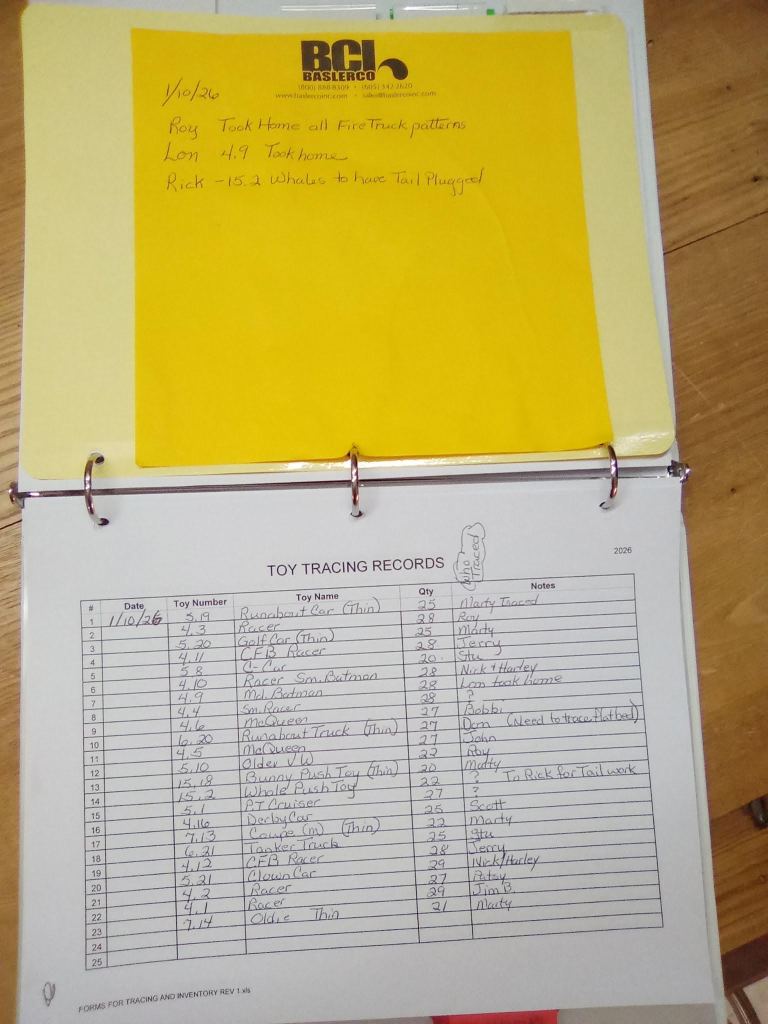 BCI
BASLERCO
(800) 888-8309 • (605) 342-2620
www.baslercoinc.com • sales@baslercoinc.com
1/10/26
Roy Took Home all Fire Truck patterns
Lon 4.9 Took home
Rick - 15.2 Whales to have Tail Plugged
TOY TRACING RECORDS
Who Traced
2026
# Date Toy Number Toy Name Qty Notes
1 1/10/26 5.19 Runabout Car (Thin) 25 Marty Traced
2 4.3 Racer 28 Roy
3 5.20 Golf Car (Thin) 25 Marty
4 4.11 CFB Racer 28 Jerry
5 5.8 C-Car 20 Stu
6 4.10 Racer Sm. Batman 28 Nick + Harley
7 4.9 Md. Batman 28 Lon took home
8 4.4 Sm. Racer 28 ?
9 4.6 McQueen 27 Bobbi
10 6.20 Runabout Truck (Thin) 27 (Need to trace flatbed)
11 4.5 McQueen 27 John
12 5.10 Older VW 22 Roy
13 15.18 Bunny Push Toy (Thin) 20 Marty
14 15.2 Whole Push Toy 22 ? To Rick for Tail work
15 5.1 PT Cruiser 27 ?
16 4.16 Derby Car 25 Scott
17 7.13 Coupe (m) (Thin) 22 Marty
18 6.21 Tanker Truck 25 Stu
19 4.12 CFB Racer 28 Jerry
20 5.21 Clown Car 29 Nick/Harley
21 4.2 Racer 27 Patsy
22 4.1 Racer 29 Jim B.
23 7.14 Oldie Thin 21 Marty
24
25
FORMS FOR TRACING AND INVENTORY REV 1.xls